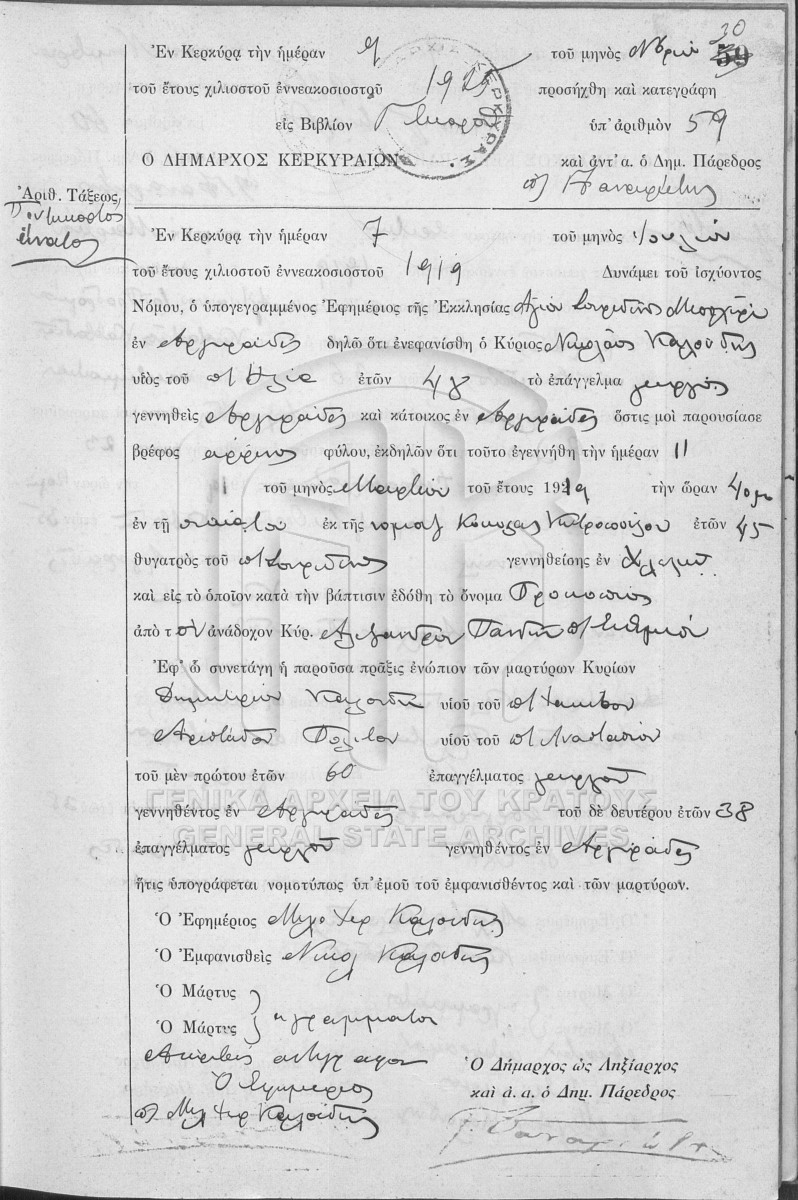 30
Ἐν Κερκύρᾳ τὴν ἡμέραν 9 τοῦ μηνὸς Νβρίου 59
τοῦ ἔτους χιλιοστοῦ ἐννεακοσιοστοῦ 1925 προσήχθη καὶ κατεγράφη
εἰς Βιβλίον ὑπ' ἀριθμὸν 59
Ο ΔΗΜΑΡΧΟΣ ΚΕΡΚΥΡΑΙΩΝ καὶ ἀντ' α. ὁ Δημ. Πάρεδρος
ΚΕΡΚΥΡΑΣ
Ἀριθ. Τάξεως
Πεντηκοστος
ένατος
Ἐν Κερκύρᾳ τὴν ἡμέραν 7 τοῦ μηνὸς Ιουλίου
τοῦ ἔτους χιλιοστοῦ ἐννεακοσιοστοῦ 1919 Δυνάμει τοῦ ἰσχύοντος
Νόμου, ὁ ὑπογεγραμμένος Ἐφημέριος τῆς Ἐκκλησίας Αγίου Σπυρίδωνος
ἐν Αργυράδες δηλῶ ὅτι ἐνεφανίσθη ὁ Κύριος Νικόλαος Καλούδης
υἱὸς τοῦ π Ηλία ἐτῶν 48 τὸ ἐπάγγελμα γεωργός
γεννηθεὶς Αργυράδες καὶ κάτοικος ἐν Αργυράδες ὅστις μοὶ παρουσίασε
βρέφος αρρενος φύλου, ἐκδηλῶν ὅτι τοῦτο ἐγεννήθη τὴν ἡμέραν 11
τοῦ μηνὸς Μαρτίου τοῦ ἔτους 1919 τὴν ὥραν 4
ἐν τῇ οικία του ἐκ τῆς ἐτῶν 45
θυγατρὸς τοῦ π Σπυρίδωνος γεννηθείσης ἐν
καὶ εἰς τὸ ὁποῖον κατὰ τὴν βάπτισιν ἐδόθη τὸ ὄνομα Προκοπιος
ἀπὸ τ ον ἀνάδοχον Κύρ. Αλεξανδρον
Ἐφ' ᾧ συνετάγη ἡ παροῦσα πρᾶξις ἐνώπιον τῶν μαρτύρων Κυρίων
Δημητρίου Καλουδη υἱοῦ τοῦ π Ιακώβου
Πολίτου υἱοῦ τοῦ π Αναστασίου
τοῦ μὲν πρώτου ἐτῶν 60 ἐπαγγέλματος γεωργού
ΓΕΝΙΚΑ ΑΡΧΕΙΑ ΤΟΥ ΚΡΑΤΟΥΣ
γεννηθέντος ἐν Αργυράδες τοῦ δὲ δευτέρου ἐτῶν 38
GENERAL STATE ARCHIVES
ἐπαγγέλματος γεωργού γεννηθέντος ἐν Αργυράδες
ἥτις ὑπογράφεται νομοτύπως ὑπ' ἐμοῦ τοῦ ἐμφανισθέντος καὶ τῶν μαρτύρων.
Ὁ Ἐφημέριος Καλούδης
Ὁ Ἐμφανισθεὶς Νικολ Καλούδης
Ὁ Μάρτυς
Ὁ Μάρτυς αγραμματοι
Ακριβες αντιγραφον
Ο Εφημεριος
Καλούδης
Ὁ Δήμαρχος ὡς Ληξίαρχος
καὶ ἀ. α. ὁ Δημ. Πάρεδρος